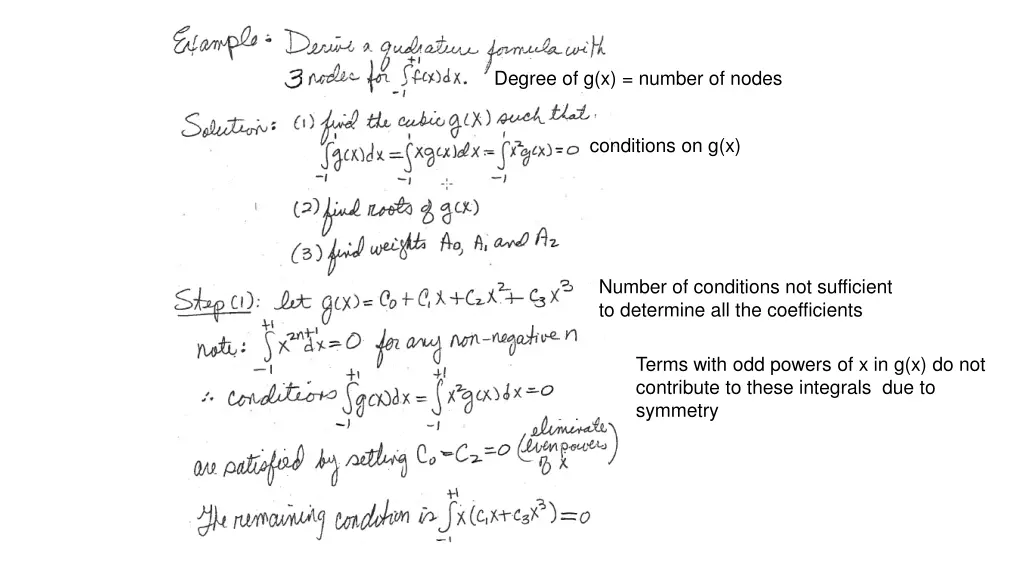 Example: Derive a quadrature formula with
3 nodes for ∫₋₁⁺¹ f(x)dx. Degree of g(x) = number of nodes
Solution: (1) find the cubic g(x) such that
∫₋₁¹ g(x)dx = ∫₋₁¹ xg(x)dx = ∫₋₁¹ x²g(x) = 0 conditions on g(x)
(2) find roots of g(x)
(3) find weights A₀, A₁ and A₂
Step (1): let g(x) = C₀ + C₁x + C₂x² + C₃x³
Number of conditions not sufficient
to determine all the coefficients
note: ∫₋₁⁺¹ x²ⁿ⁺¹dx = 0 for any non-negative n
Terms with odd powers of x in g(x) do not
contribute to these integrals due to
symmetry
∴ conditions ∫₋₁⁺¹ g(x)dx = ∫₋₁⁺¹ x²g(x)dx = 0
are satisfied by setting C₀ = C₂ = 0 (eliminate
even powers
of x)
The remaining condition is ∫₋₁⁺¹ x(c₁x + c₃x³) = 0